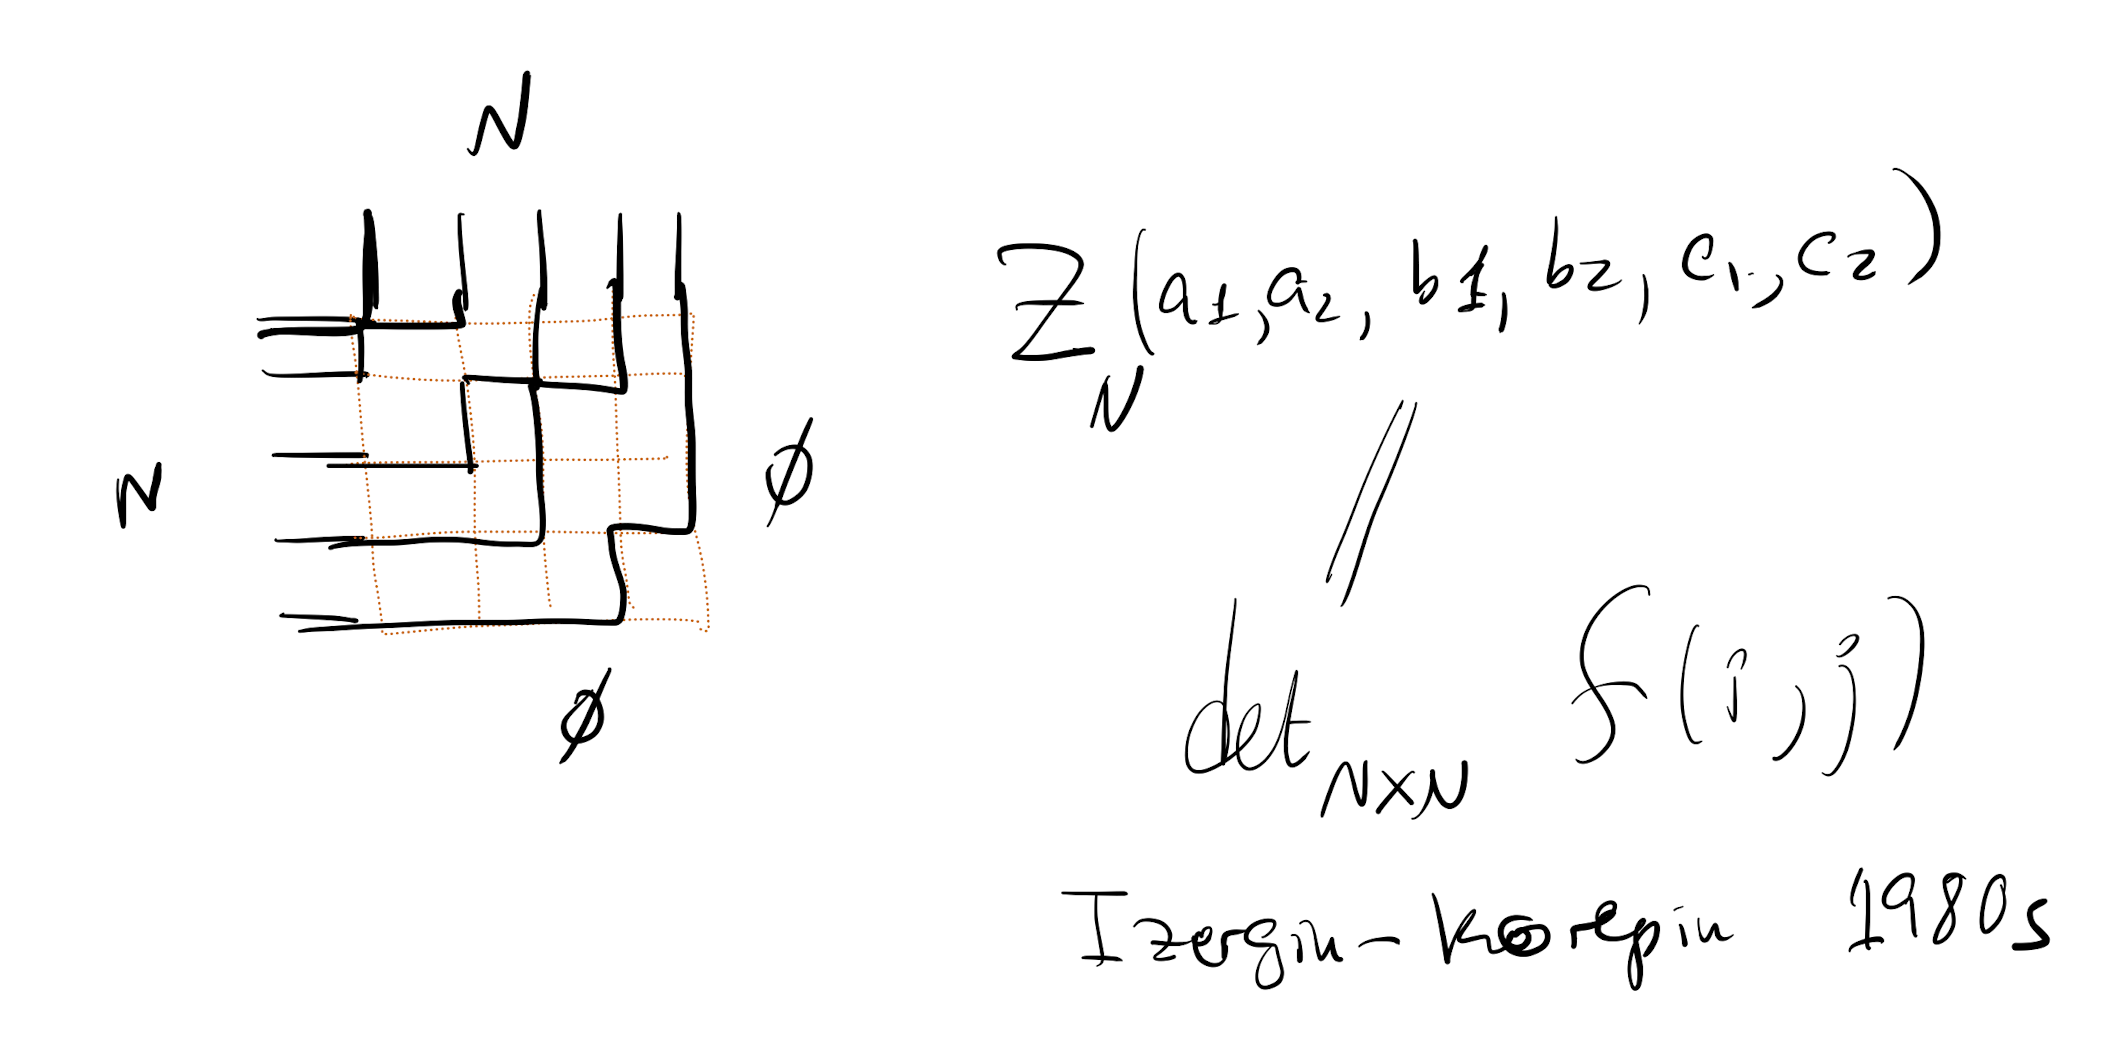 N
Z_N(a1, a2, b1, b2, c1, c2)
N
Ø
||
det_{N×N} f(i,j)
Ø
Izergin-Korepin 1980s